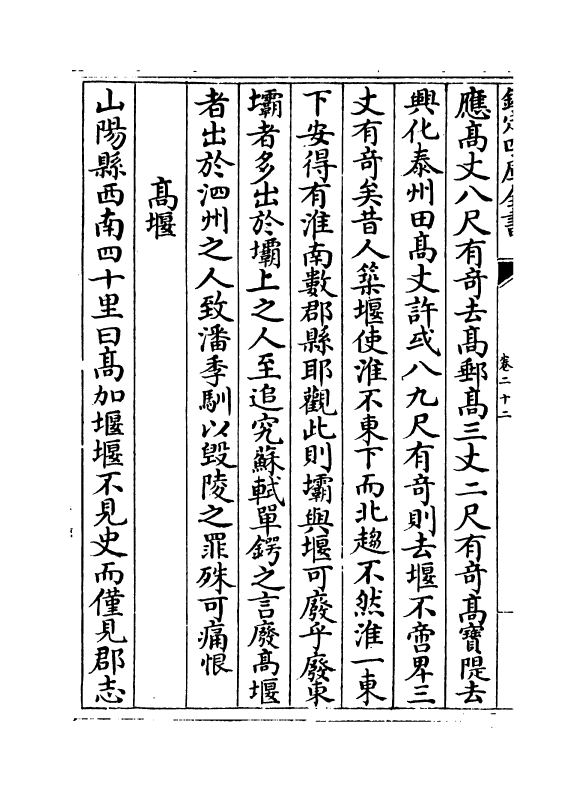 欽定四庫全書
卷二十二
應髙丈八尺有竒去髙郵髙三丈二尺有竒髙寳隄去
興化泰州田髙丈許或八九尺有竒則去堰不啻畀三
丈有竒矣昔人築堰使淮不東下而北趨不然淮一東
下安得有淮南數郡縣耶觀此則壩與堰可廢乎廢東
壩者多出於壩上之人至追究蘇軾單鍔之言廢髙堰
者出於泗州之人致潘季馴以毁陵之罪殊可痛恨
髙堰
山陽縣西南四十里曰髙加堰堰不見史而僅見郡志